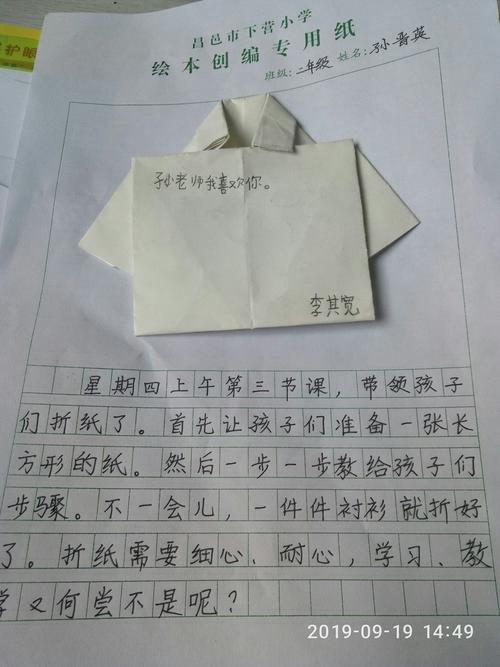 护眼
昌邑市下营小学
绘本创编专用纸
班级：二年级 姓名：孙晋英
孙老师我喜欢你。
李其宽
星期四上午第三节课，带领孩子
们折纸了。首先让孩子们准备一张长
方形的纸。然后一步一步教给孩子们
步骤。不一会儿，一件件衬衫就折好
了。折纸需要细心、耐心，学习、教
学又何尝不是呢？
2019-09-19 14:49